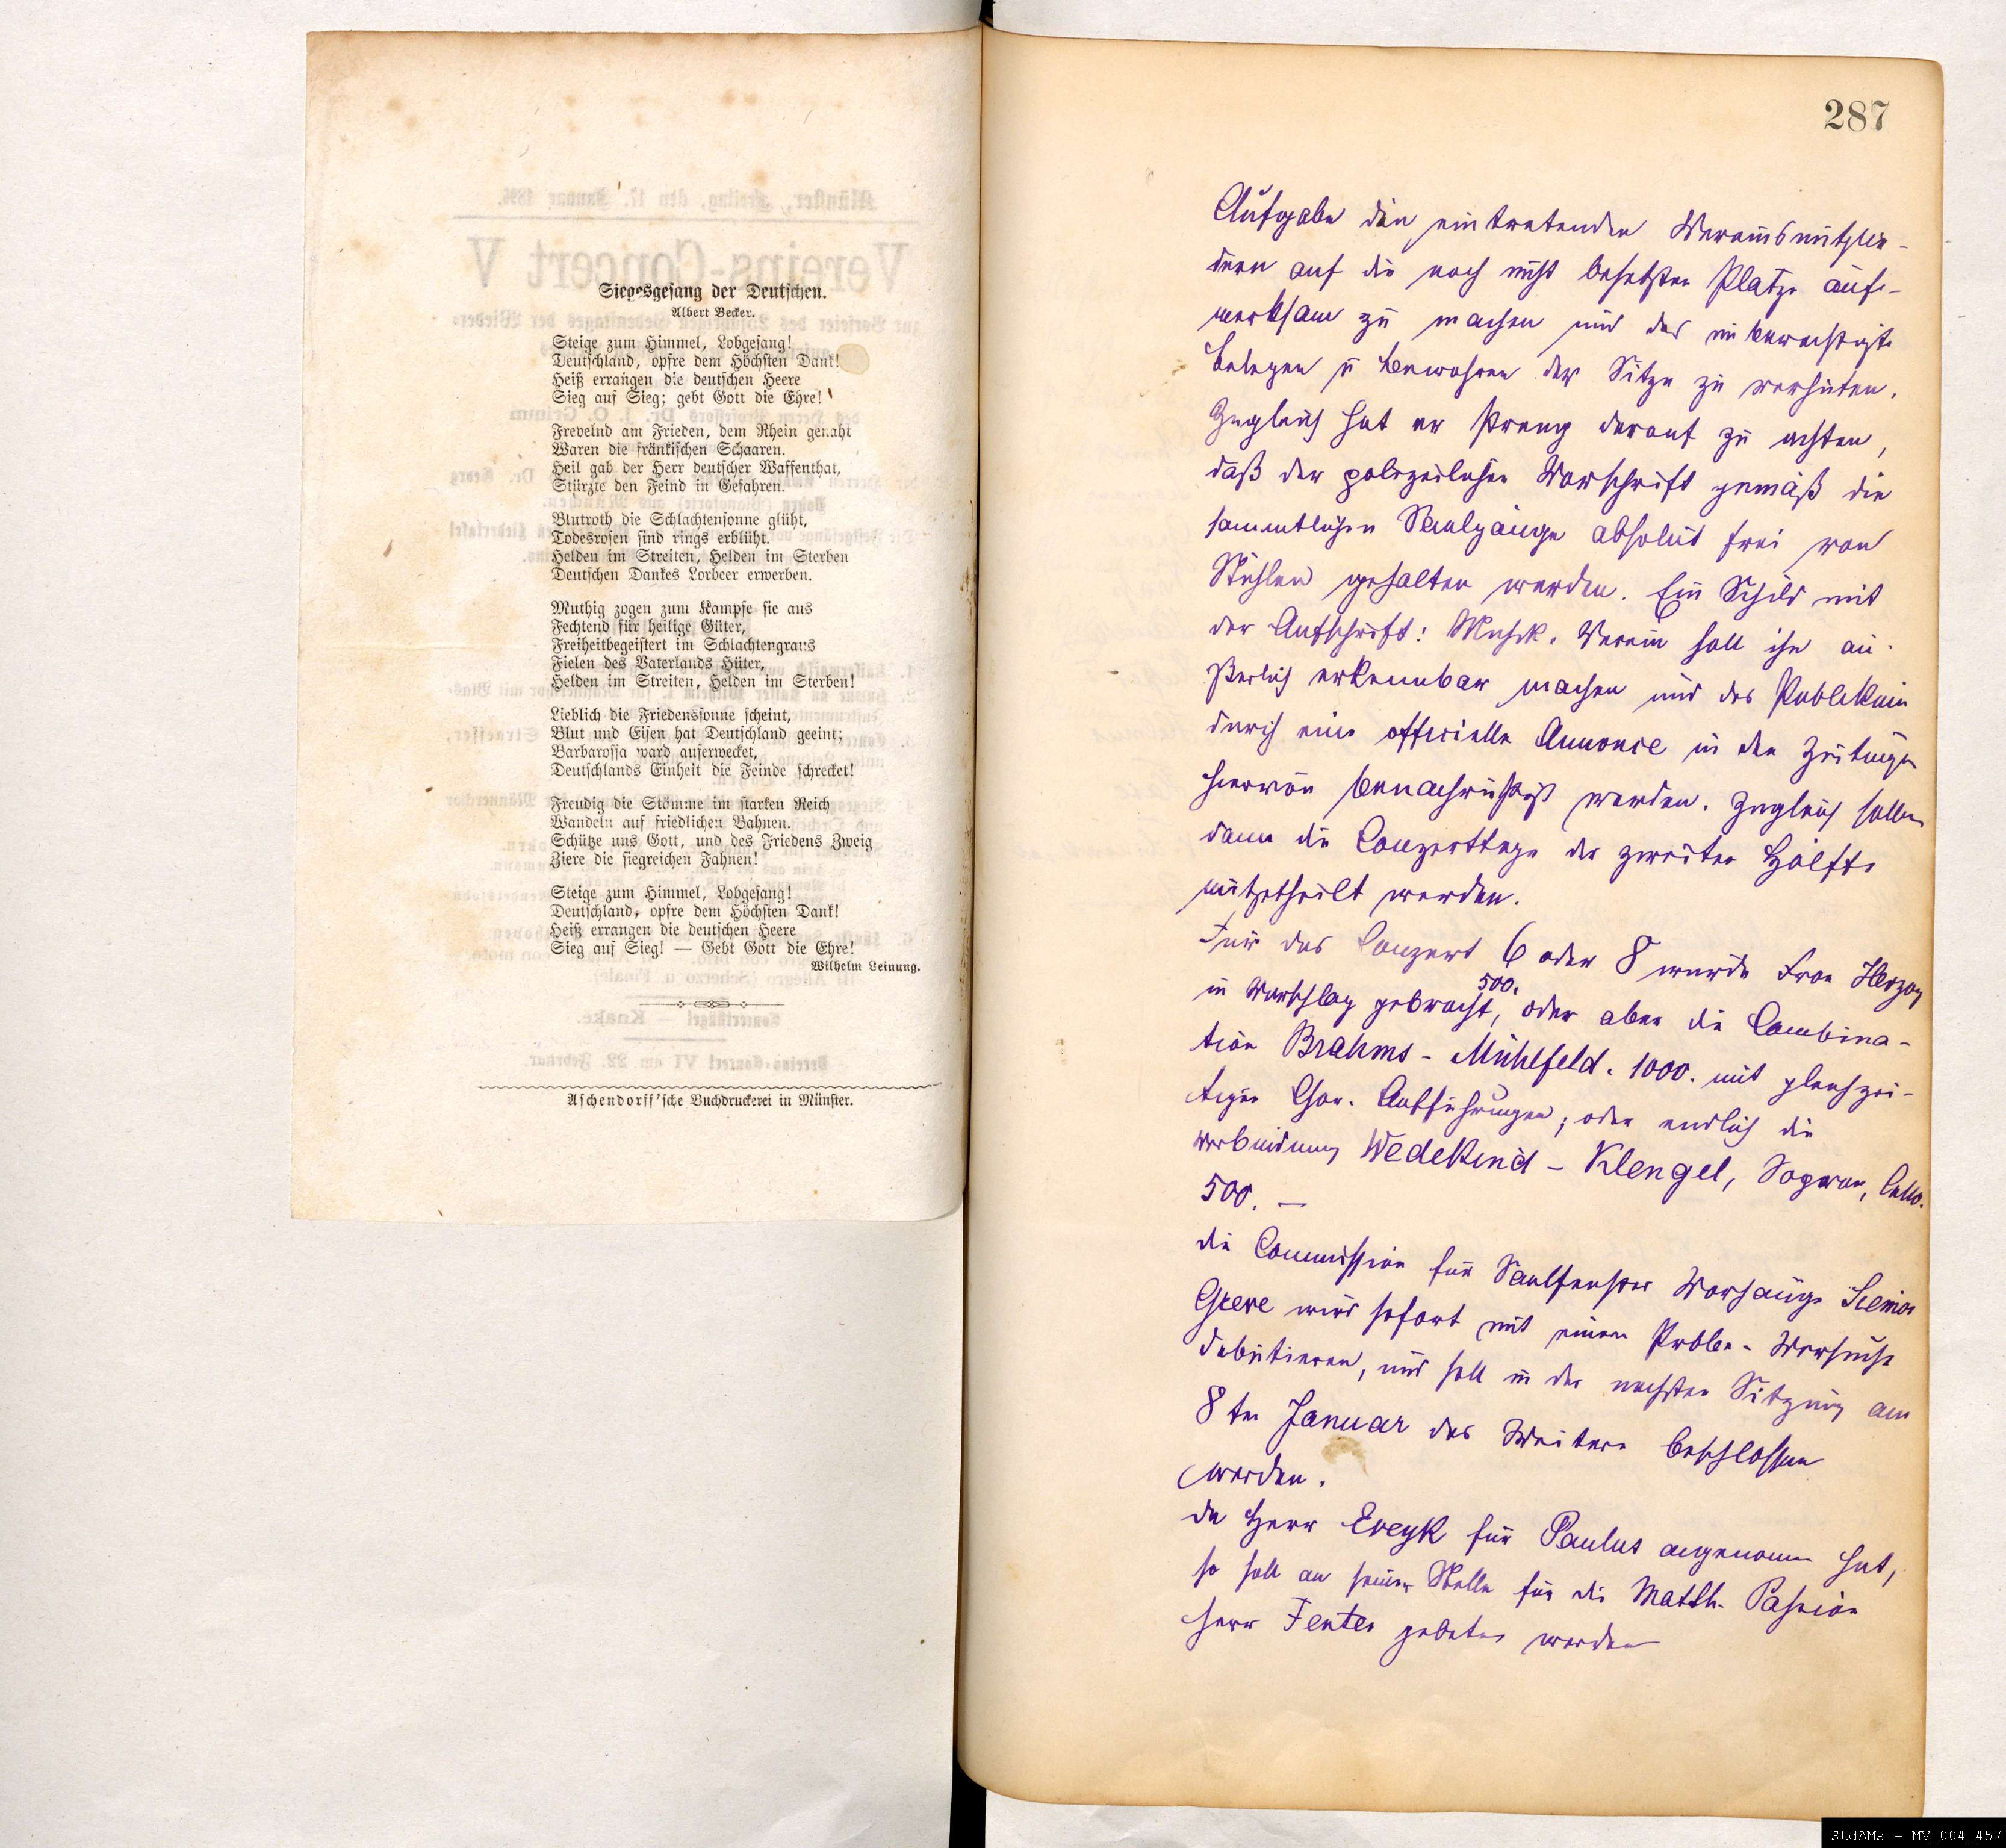 Siegesgesang der Deutschen.
Albert Becker.
Steige zum Himmel, Lobgesang!
Deutschland, opfre dem Höchsten Dank!
Heiß errangen die deutschen Heere
Sieg auf Sieg; gebt Gott die Ehre!
Frevelnd am Frieden, dem Rhein genaht
Waren die fränkischen Schaaren.
Heil gab der Herr deutscher Waffenthat,
Stürzte den Feind in Gefahren.
Blutroth die Schlachtensonne glüht,
Todesrosen sind rings erblüht.
Helden im Streiten, Helden im Sterben
Deutschen Dankes Lorbeer erwerben.
Muthig zogen zum Kampfe sie aus
Fechtend für heilige Güter,
Freiheitbegeistert im Schlachtengraus
Fielen des Vaterlands Hüter,
Helden im Streiten, Helden im Sterben!
Lieblich die Friedenssonne scheint,
Blut und Eisen hat Deutschland geeint;
Barbarossa ward auferwecket,
Deutschlands Einheit die Feinde schrecket!
Freudig die Stämme im starken Reich
Wandeln auf friedlichen Bahnen.
Schütze uns Gott, und des Friedens Zweig
Ziere die siegreichen Fahnen!
Steige zum Himmel, Lobgesang!
Deutschland, opfre dem Höchsten Dank!
Heiß errangen die deutschen Heere
Sieg auf Sieg! — Gebt Gott die Ehre!
Wilhelm Leinung.
Aschendorff'sche Buchdruckerei in Münster.
287
Aufgabe die eintretenden Vereinsmitglie-
dern auf die noch nicht besetzten Plätze auf-
merksam zu machen und das unberechtigte
Belegen u Bewahren der Sitze zu verhüten.
Zugleich hat er streng darauf zu achten,
daß der polizeilichen Vorschrift gemäß die
sammtlichen Saalgänge absolut frei von
Stühlen gehalten werden. Ein Schild mit
der Aufschrift: Musik. Verein soll ihn äu-
ßerlich erkennbar machen und das Publikum
durch eine officielle Annonce in den Zeitungen
hiervon benachrichtigt werden. Zugleich sollen
dann die Conzerttage der zweiten Hälfte
mitgetheilt werden.
Für das Conzert 6 oder 8 wurde Frau Herzog
500.
in Vorschlag gebracht, oder aber die Combina-
tion Brahms - Mühlfeld. 1000. mit gleichzei-
tigen Chor. Aufführungen; oder endlich die
Verbindung Wedekind - Klengel, Sopran, Cello.
500. —
die Commission für Saalfenster Vorhänge
Greve wird sofort mit einem Proben-Versuche
debütieren, und soll in der nächsten Sitzung am
8ten Januar das Weitere beschlossen
werden.
da Herr Eweyk für Paulus angenommen hat,
so soll an seiner Stelle für die Matth. Passion
Herr Fenten gebeten werden
StdAMs - MV_004_457